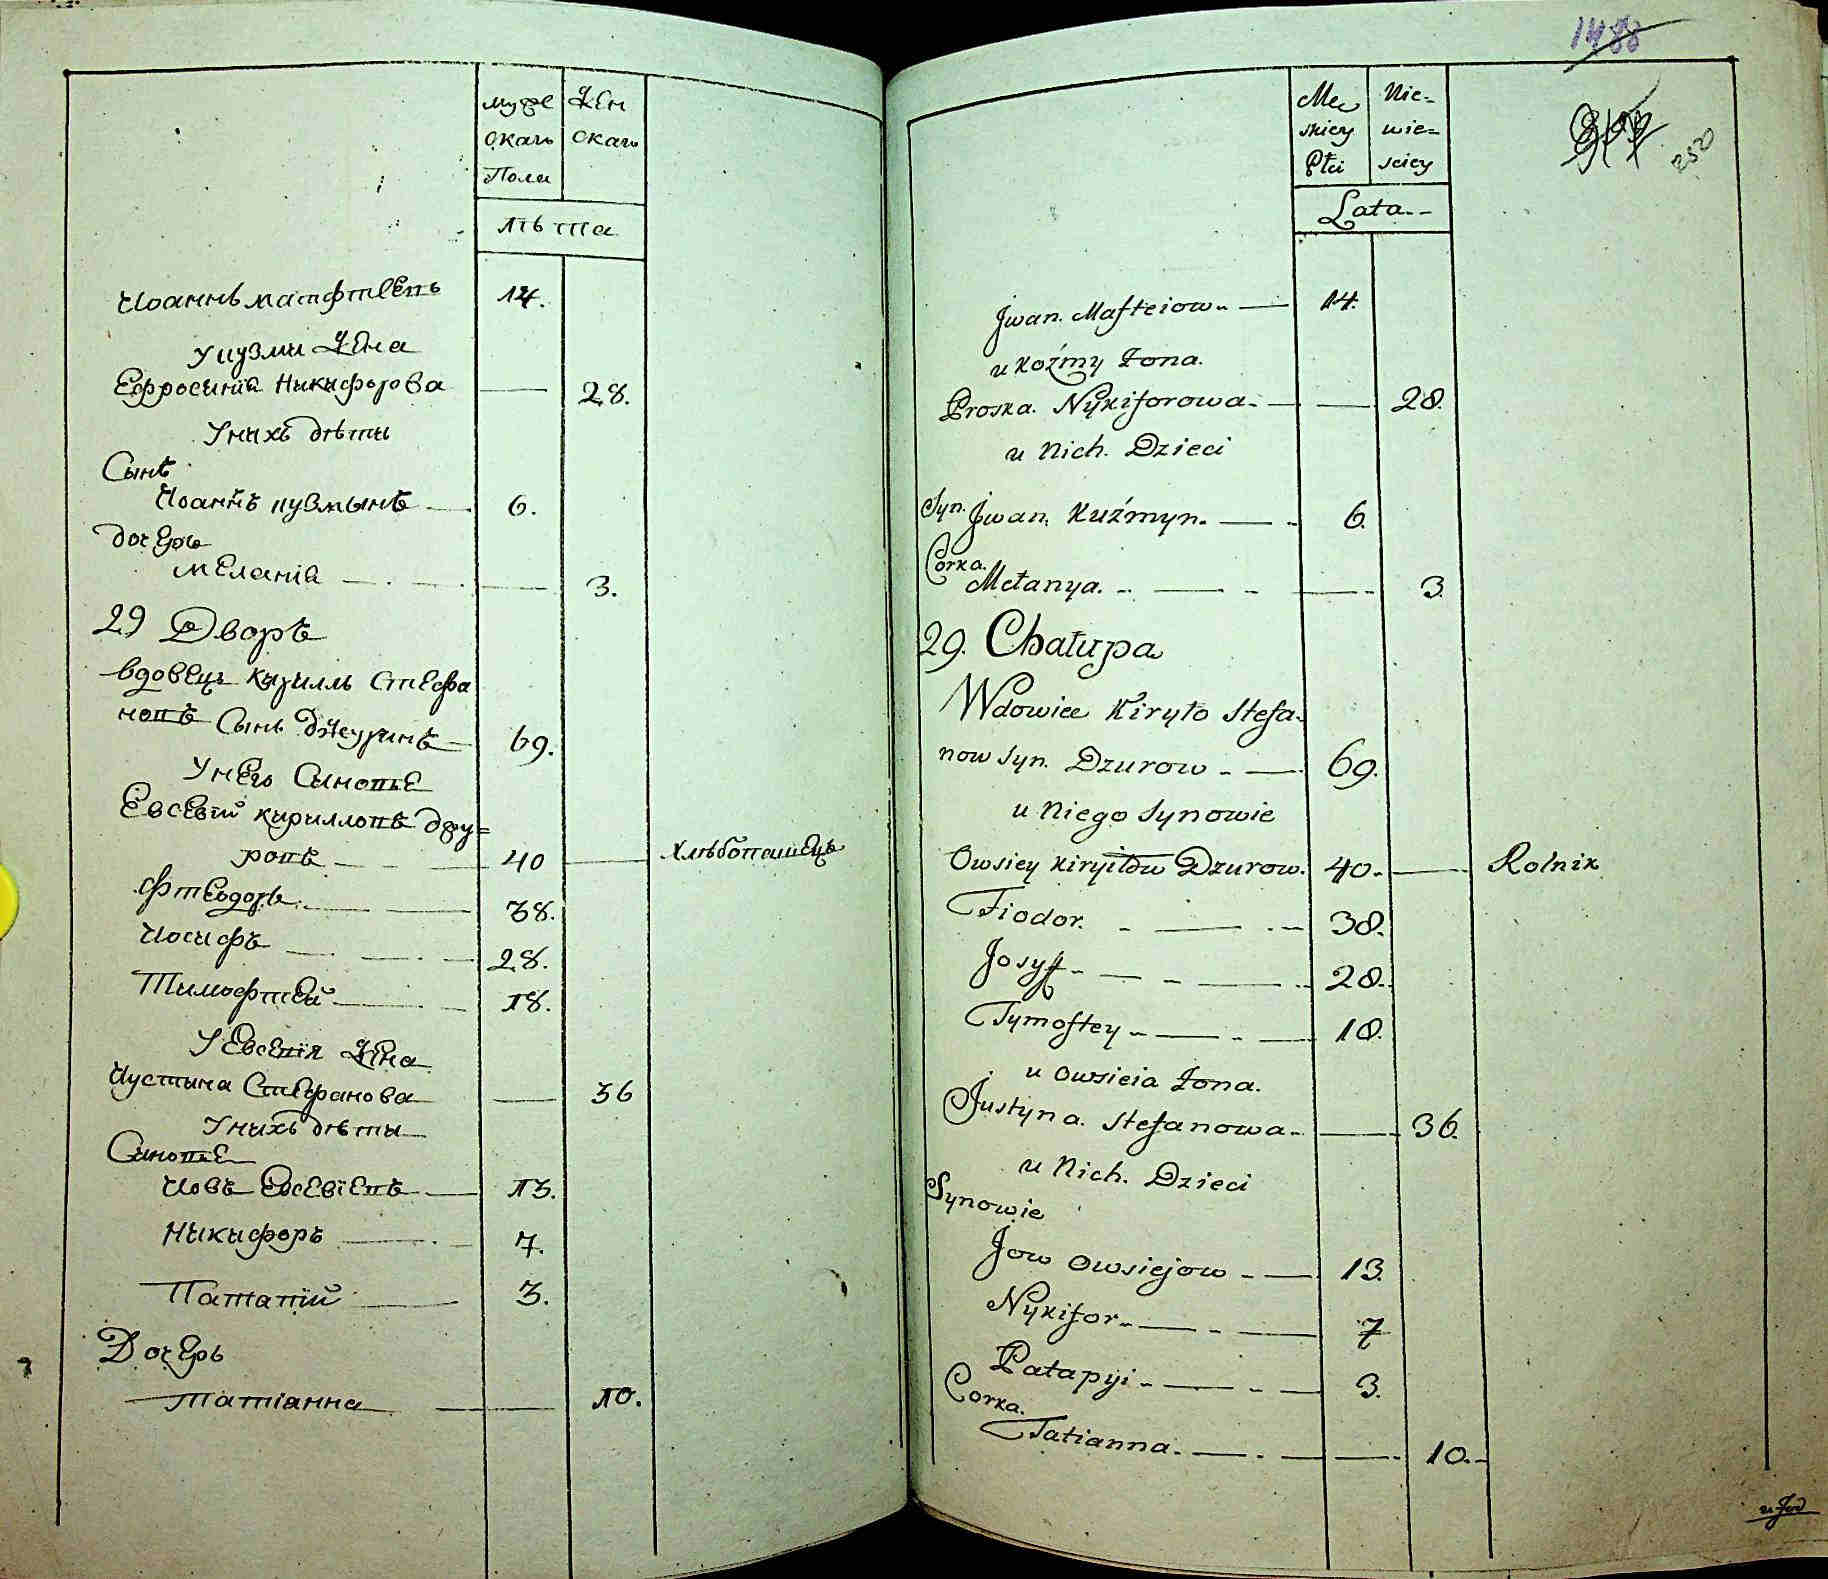 муже
скаго
Полu
Жен
скаго
лѣта
Иоаннъ мафтеевъ 14.
У кузми Жена
Ефросинiа Никифорова — 28.
У нихъ дѣти
Сынъ
Иоаннъ кузмынъ — 6.
дочерь
меланiа — 3.
29 Дворъ
вдовецъ кириллъ стефа
новъ Сынъ джуринъ — 69.
У него Синовье
Евсевiй кирилловъ джу=
ровъ — 40 — хлѣбопашецъ
Фтеодоръ — 38.
Иосифъ — 28.
Тимофтей — 18.
У Евсевiя Жена
Иустина Стефанова — 36
У нихъ дѣти
Синовье
Иовъ Евсевiевъ — 13.
Никифоръ — 7.
Патапiй — 3.
Дочерь
татiанна — 10.
1488
250
Mę
skiey
Płci
Nie=
wie=
sciey
Lata.-
Jwan. Mafteiow.. — 14.
u Koźmy Zona.
Proska. Nykiforowa. — 28.
u Nich. Dzieci
Syn. Jwan. Kuźmyn. — 6.
Corka.
Mełanya. — 3.
29. Chałupa
Wdowiec Kiryło Stefa.
now syn. Dzurow — 69.
u Niego Synowie
Owsiey Kiryiłow Dzurow. 40. — Rolnik
Fiodor. — 38.
Josyf — 28.
Tymoftey — 18.
u Owsieia Zona.
Justyna. Stefanowa. — 36.
u Nich. Dzieci
Synowie
Jow Owsiejow — 13.
Nykifor. — 7
Patapyi — 3.
Corka.
Tatianna. — 10.